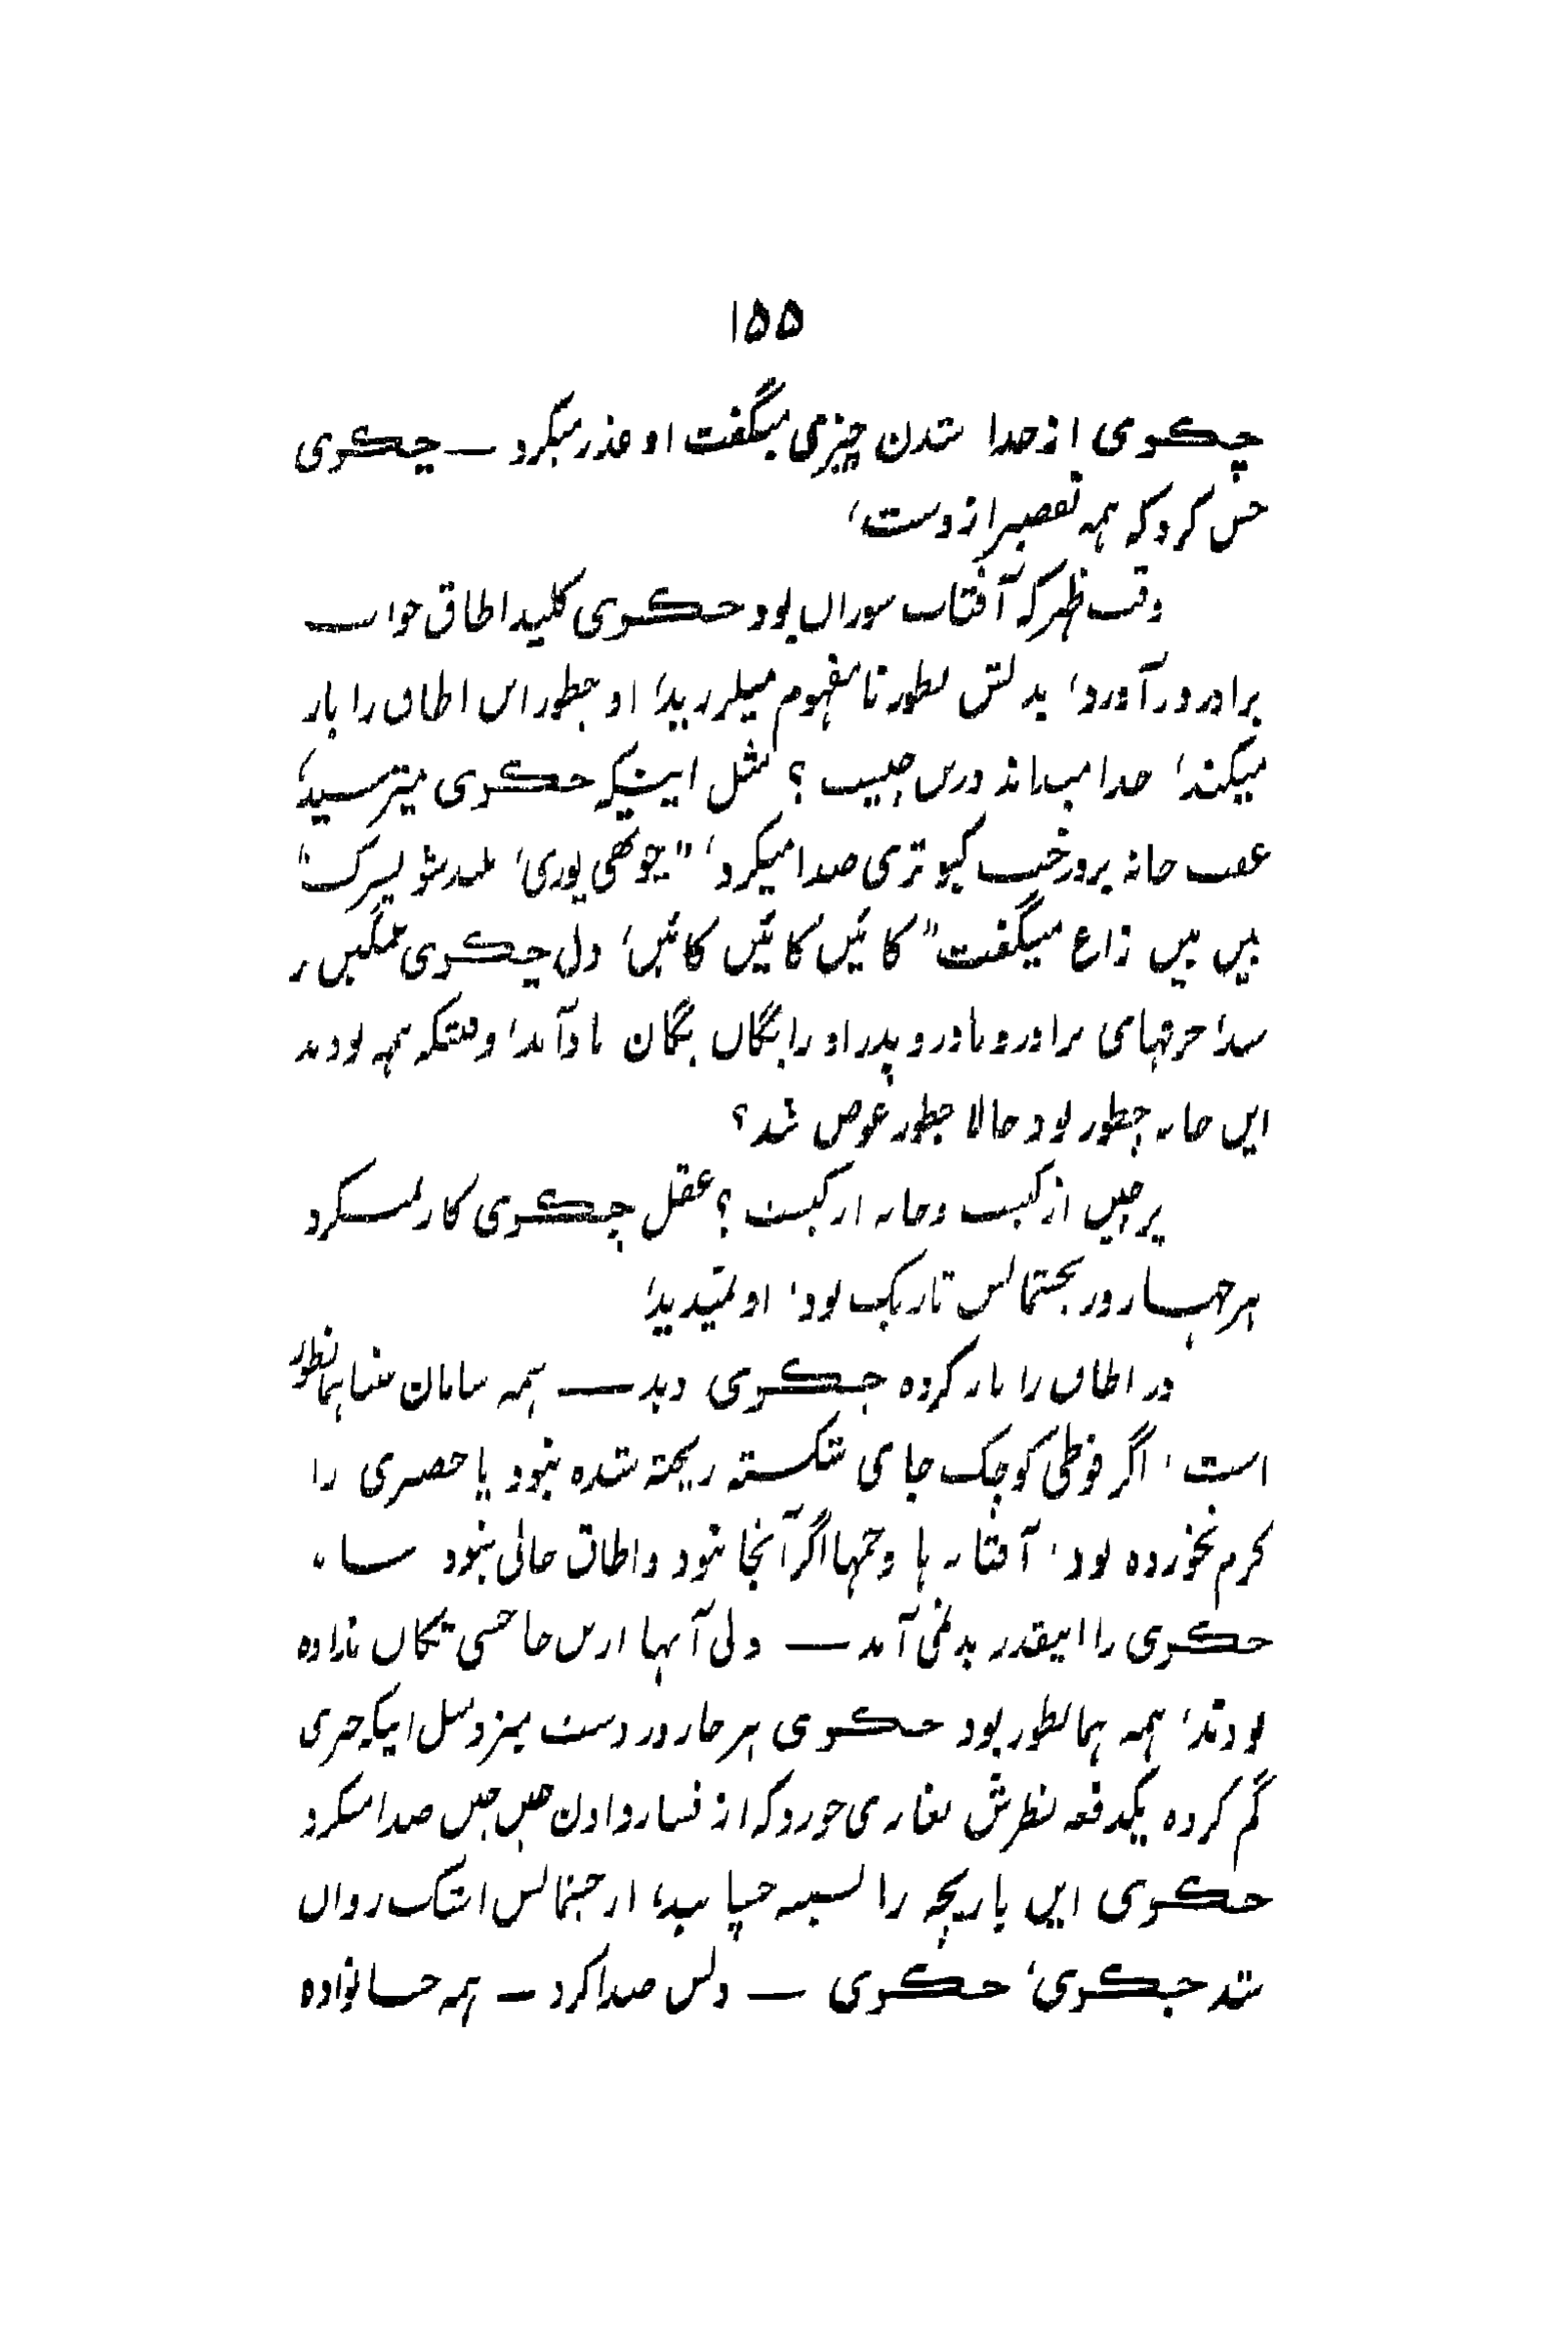 ۱۵۵
چکوی از جدا شدن چیزی میگفت او عذر میکرد — چکوی
حس کرد که همه تقصیر از دست،
وقت ظهر که آفتاب سوزان بود چکوی کلید اطاق خواب
برادر در آورد، بدلش بطور نامفهوم میلرزید، او چطور این اطاق را باز
میکند، خدا میداند درین چیست ؟ مثل اینکه چکوی میترسید،
عقب خانه بر درخت کبوتری صدا میکرد، "چوتهی پوری، بلند شو پسرک،
بین بین زاغ میگفت" کائیں کائیں کائیں، دل چکوی غمگین تر
شد، حرفهای برادر و مادر و پدر او را یگان یگان یاد آمد، وقتیکه همه بودند
این خانه چطور بود حالا چطور عوض شد ؟
پرچین از کیست و خانه از کیست ؟ عقل چکوی کار نمیکرد
هر چهار ور بچشمانش تاریک بود، او نمیدید،
در اطاق را باز کرده چکوی دید — همه سامان سرجا همانطور
است، اگر قوطی کوچک چای شکسته ریخته شده نبود یا حصیری را
کرم نخورده بود، آفتابه ها و خمها اگر آنجا نبود و اطاق خالی نبود شاید
چکوی را اینقدر بد نمی آمد — ولی آنها ازین جا خسی تکان نداده
بودند، همه همانطور بود چکوی هر چار ور دست میزد مثل اینکه چیزی
گم کرده یکدفعه نظرش بغازی خورد که از فشار دادن چین چین صدا میکرد
چکوی این بازیچه را بسینه چسپانید، از چشمانش اشک روان
شد چکوی، چکوی — دلش صدا کرد — همه خانواده